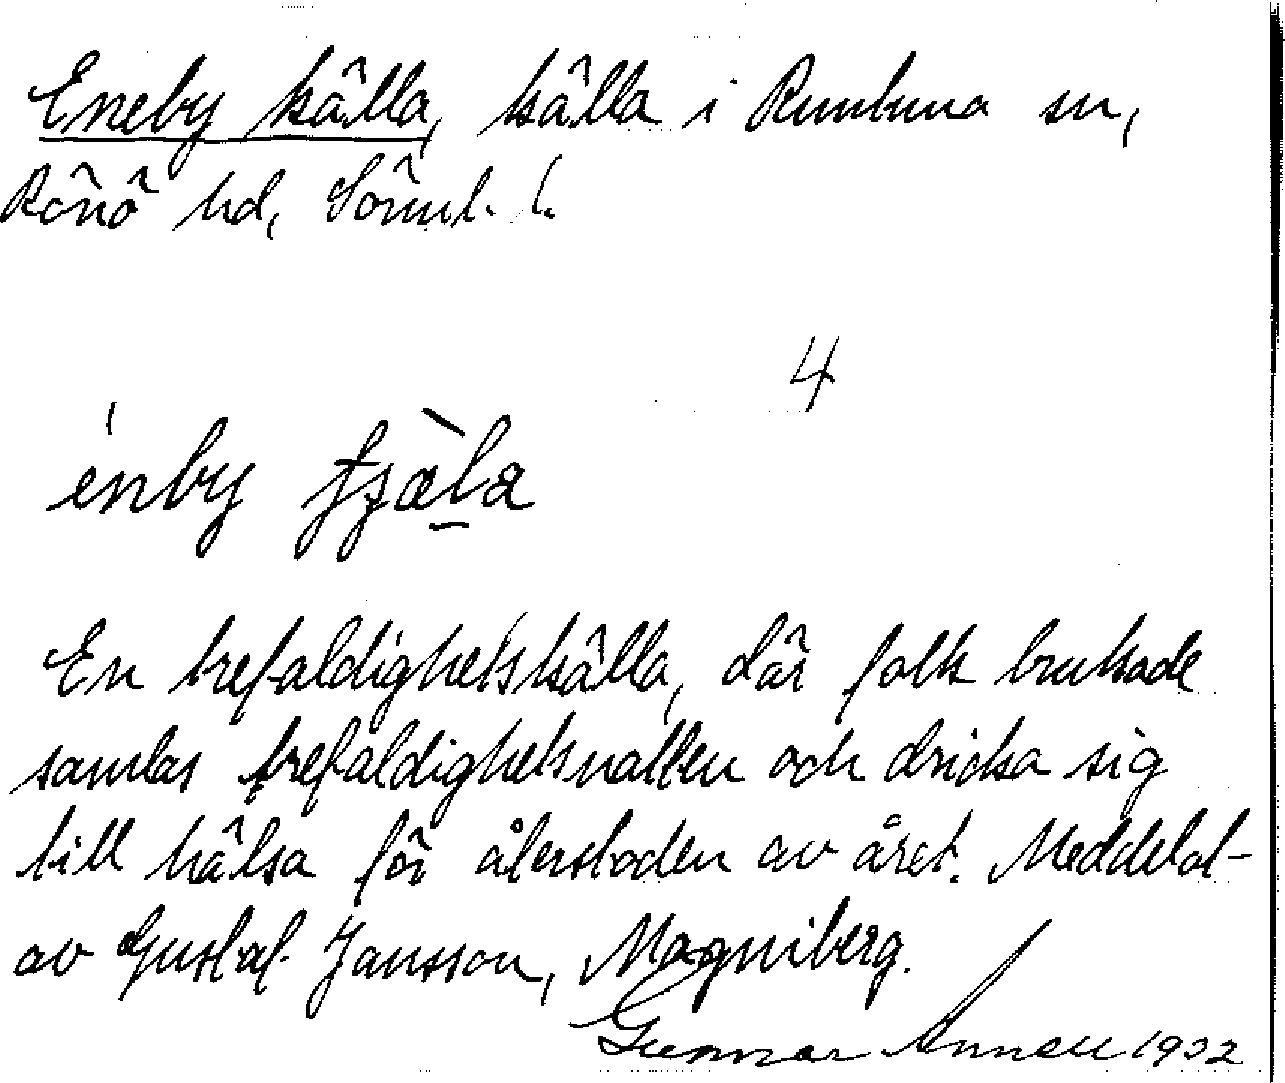 Eneby källa, källa i Runtuna sn,
Rönö hd, Sörml. l.
4
énby tjæ̀la
En trefaldighetskälla, där folk brukade
samlas trefaldighetsnatten och dricka sig
till hälsa för återstoden av året. Meddelat
av Gustaf Jansson, Magniberg.
Gunnar Annell 1932